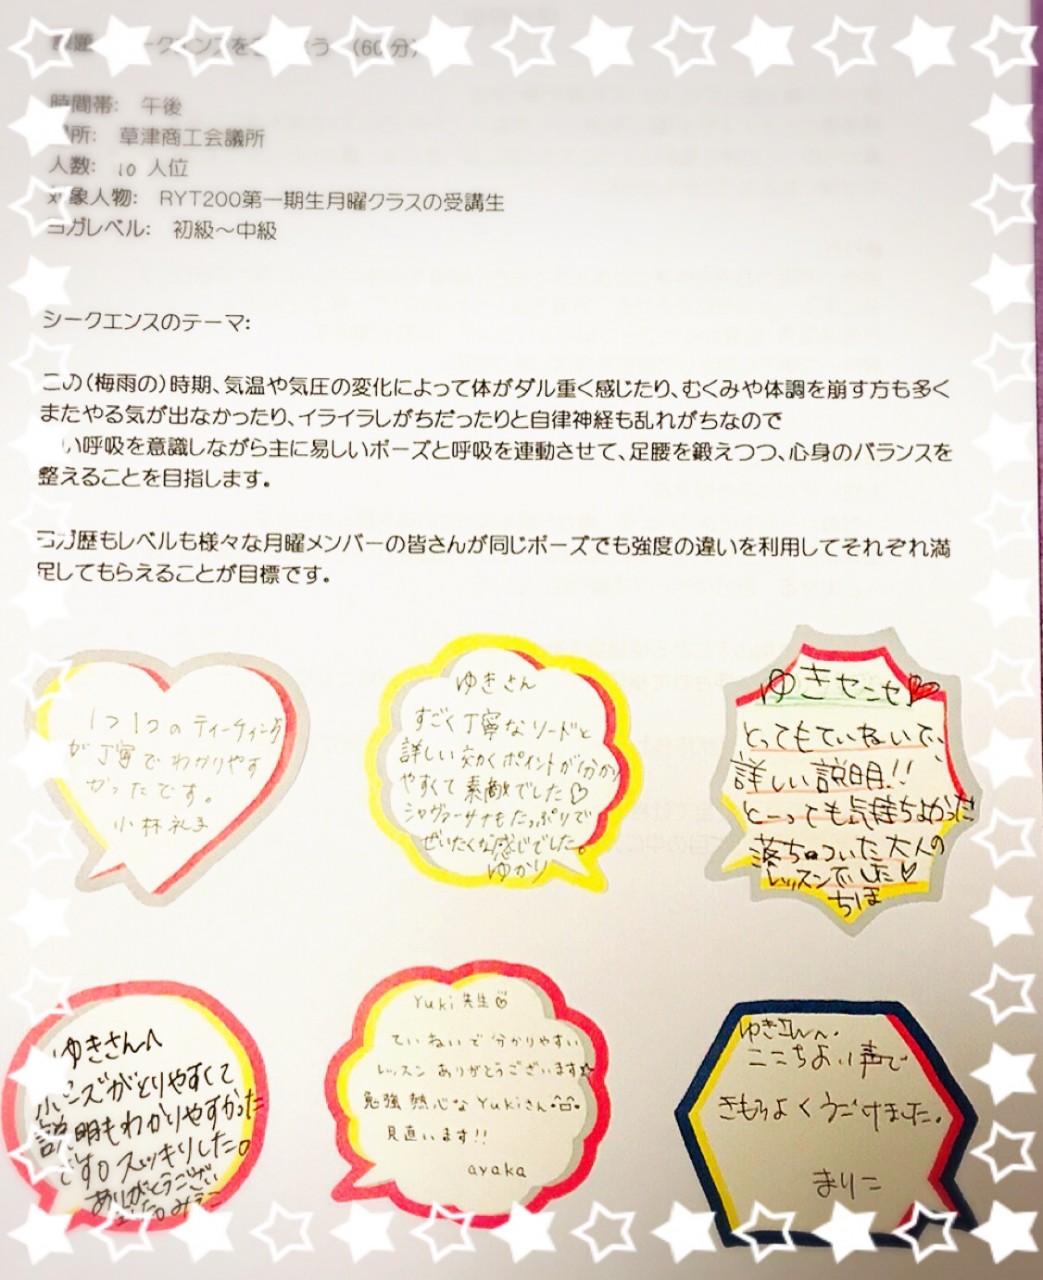 シークエンスを (60分)
時間帯: 午後
所: 草津商工会議所
人数: 10 人位
対象人物: RYT200第一期生月曜クラスの受講生
ヨガレベル: 初級〜中級
シークエンスのテーマ:
この(梅雨の)時期、気温や気圧の変化によって体がダル重く感じたり、むくみや体調を崩す方も多く
またやる気が出なかったり、イライラしがちだったりと自律神経も乱れがちなので
い呼吸を意識しながら主に易しいポーズと呼吸を連動させて、足腰を鍛えつつ、心身のバランスを
整えることを目指します。
ヨガ歴もレベルも様々な月曜メンバーの皆さんが同じポーズでも強度の違いを利用してそれぞれ満
足してもらえることが目標です。
1つ1つのティーチング
が丁寧でわかりやす
かったです。
小林礼子
ゆきさん
すごく丁寧なリードと
詳しい効くポイントが分かり
やすくて素敵でした♡
シャヴァーサナもたっぷりで
ぜいたくな感じでした。
ゆかり
ゆきセンセ♥
とってもていねいで、
詳しい説明!!
とーっても気持ちよかった
落ちついた大人の
レッスンでした♡
ちほ
ゆきさんへ
ポーズがとりやすくて
説明もわかりやすかった
です。スッキリした。
ありがとうござい
ました。みえこ
Yuki先生♡
ていねいで分かりやすい
レッスンありがとうございます☆
勉強熱心なYukiさん
見直います!!
ayaka
ゆきさんへ
ここちよい声で
きもちよくうごけました。
まりこ